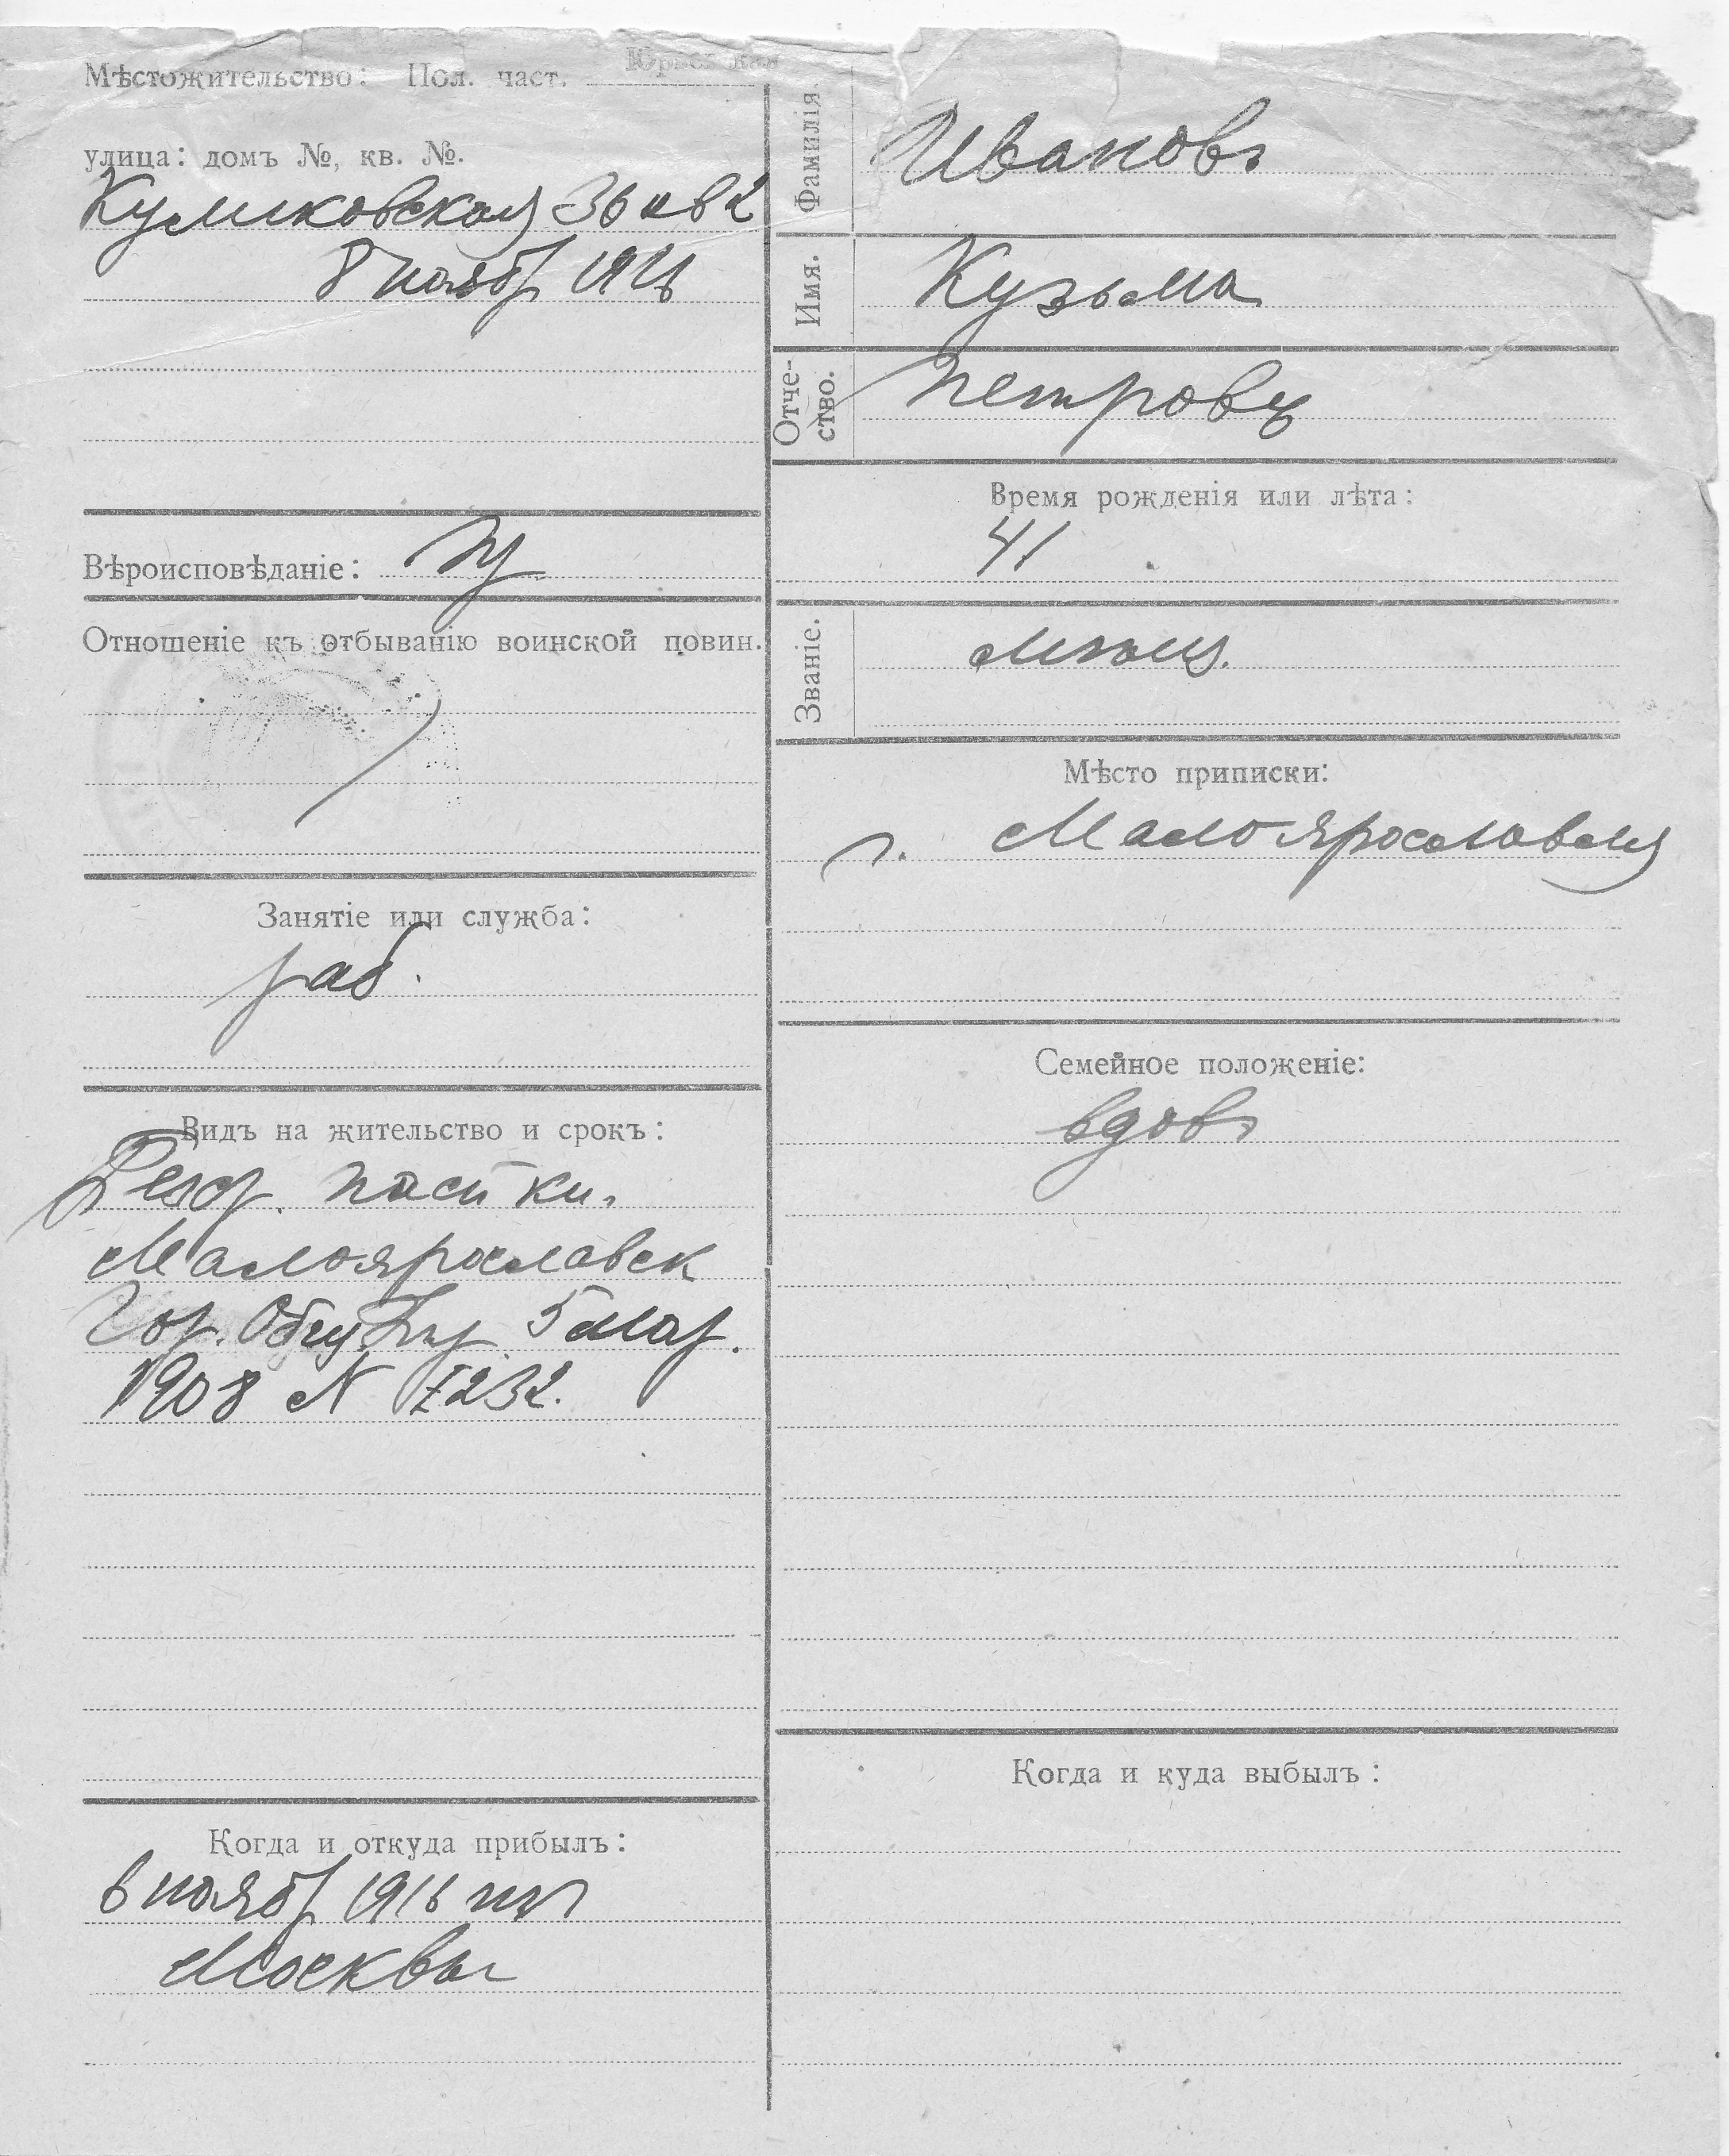 Мѣстожительство: Пол. част. Юрьевская
улица: домъ №, кв. №.
Куликовская 36 кв 2
8 ноябр 1916
Вѣроисповѣданіе: пр
Отношеніе къ отбыванію воинской повин.
Занятіе или служба:
раб.
Видъ на жительство и срокъ:
пасп кн.
Малоярославск
Гор. 5 мар.
1908 N 1232.
Когда и откуда прибылъ:
6 ноябр 1916 изъ
Москвы
Фамилія.
Ивановъ
Имя.
Кузьма
Отче-
ство.
Петровъ
Время рожденія или лѣта:
41
Званіе.
мѣщ.
Мѣсто приписки:
г. Малоярославец
Семейное положеніе:
вдовъ
Когда и куда выбылъ: